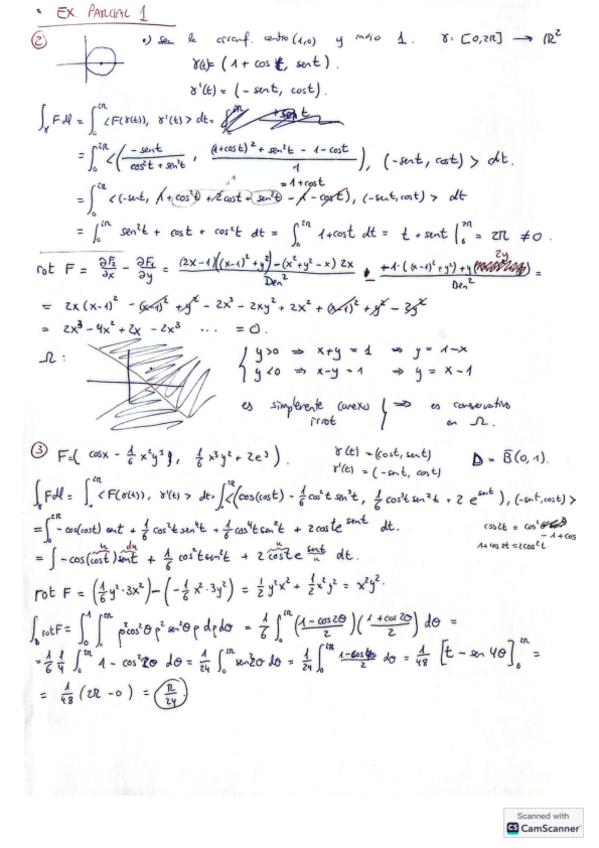 • EX. PARCIAL 1
② •) Sea la circunf. centro (1,0) y radio 1. γ: [0,2π] → ℝ²
γ(t) = (1 + cos t, sent).
γ'(t) = (- sent, cost).
∫_γ Fdl = ∫₀^2π <F(γ(t)), γ'(t)> dt =
= ∫₀^2π <( -sent / cos²t + sen²t , (1+cost)² + sen²t - 1 - cost / 1 ), (-sent, cost)> dt.
= 1 + cost
= ∫₀^2π <(-sent, 1 + cos²t + 2cost + sen²t - 1 - cost), (-sent, cost)> dt
= ∫₀^2π sen²t + cost + cos²t dt = ∫₀^2π 1+cost dt = t + sent |₀^2π = 2π ≠ 0.
rot F = ∂F₂/∂x - ∂F₁/∂y = (2x-1)((x-1)²+y²) - (x²+y²-x) 2x / Den² + 1·((x-1)²+y²) + y 2y / Den² =
= 2x(x-1)² - (x-1)² + y² - 2x³ - 2xy² + 2x² + (x-1)² + y² - 2y²
= 2x³ - 4x² + 2x - 2x³ ... = 0.
Ω: { y>0 ⇒ x+y = 1 ⇒ y = 1-x
y<0 ⇒ x-y = 1 ⇒ y = x-1
es simplemente conexo } ⇒ es conservativo
irrot en Ω.
③ F=( cosx - 1/6 x²y³, 1/6 x³y² + 2e^y ). γ(t) = (cost, sent) D = B̄(0,1).
γ'(t) = (-sent, cost)
∫_γ Fdl = ∫ <F(γ(t)), γ'(t)> dt = ∫ <(cos(cost) - 1/6 cos²t sen³t, 1/6 cos³t sen²t + 2 e^sent), (-sent, cost)>
= ∫₀^2π -cos(cost) sent + 1/6 cos²t sen⁴t + 1/6 cos⁴t sen²t + 2cost e^sent dt.
cos2t = cos²
-1+cos
1+cos2t = 2cos²t
= ∫ -cos(cost) sent + 1/6 cos²t sen²t + 2 cost e^sent dt.
rot F = (1/6 y²·3x²) - (-1/6 x²·3y²) = 1/2 y²x² + 1/2 x²y² = x²y².
∫_D rotF = ∫₀^1 ∫₀^2π ρ²cos²θ ρ² sen²θ ρ dρ dθ = 1/6 ∫₀^2π (1-cos2θ / 2)(1+cos2θ / 2) dθ =
= 1/6 1/4 ∫₀^2π 1 - cos²2θ dθ = 1/24 ∫₀^2π sen²2θ dθ = 1/24 ∫₀^2π 1-cos4θ / 2 dθ = 1/48 [t - sen 4θ]₀^2π =
= 1/48 (2π - 0) = π/24.
Scanned with
CS CamScanner